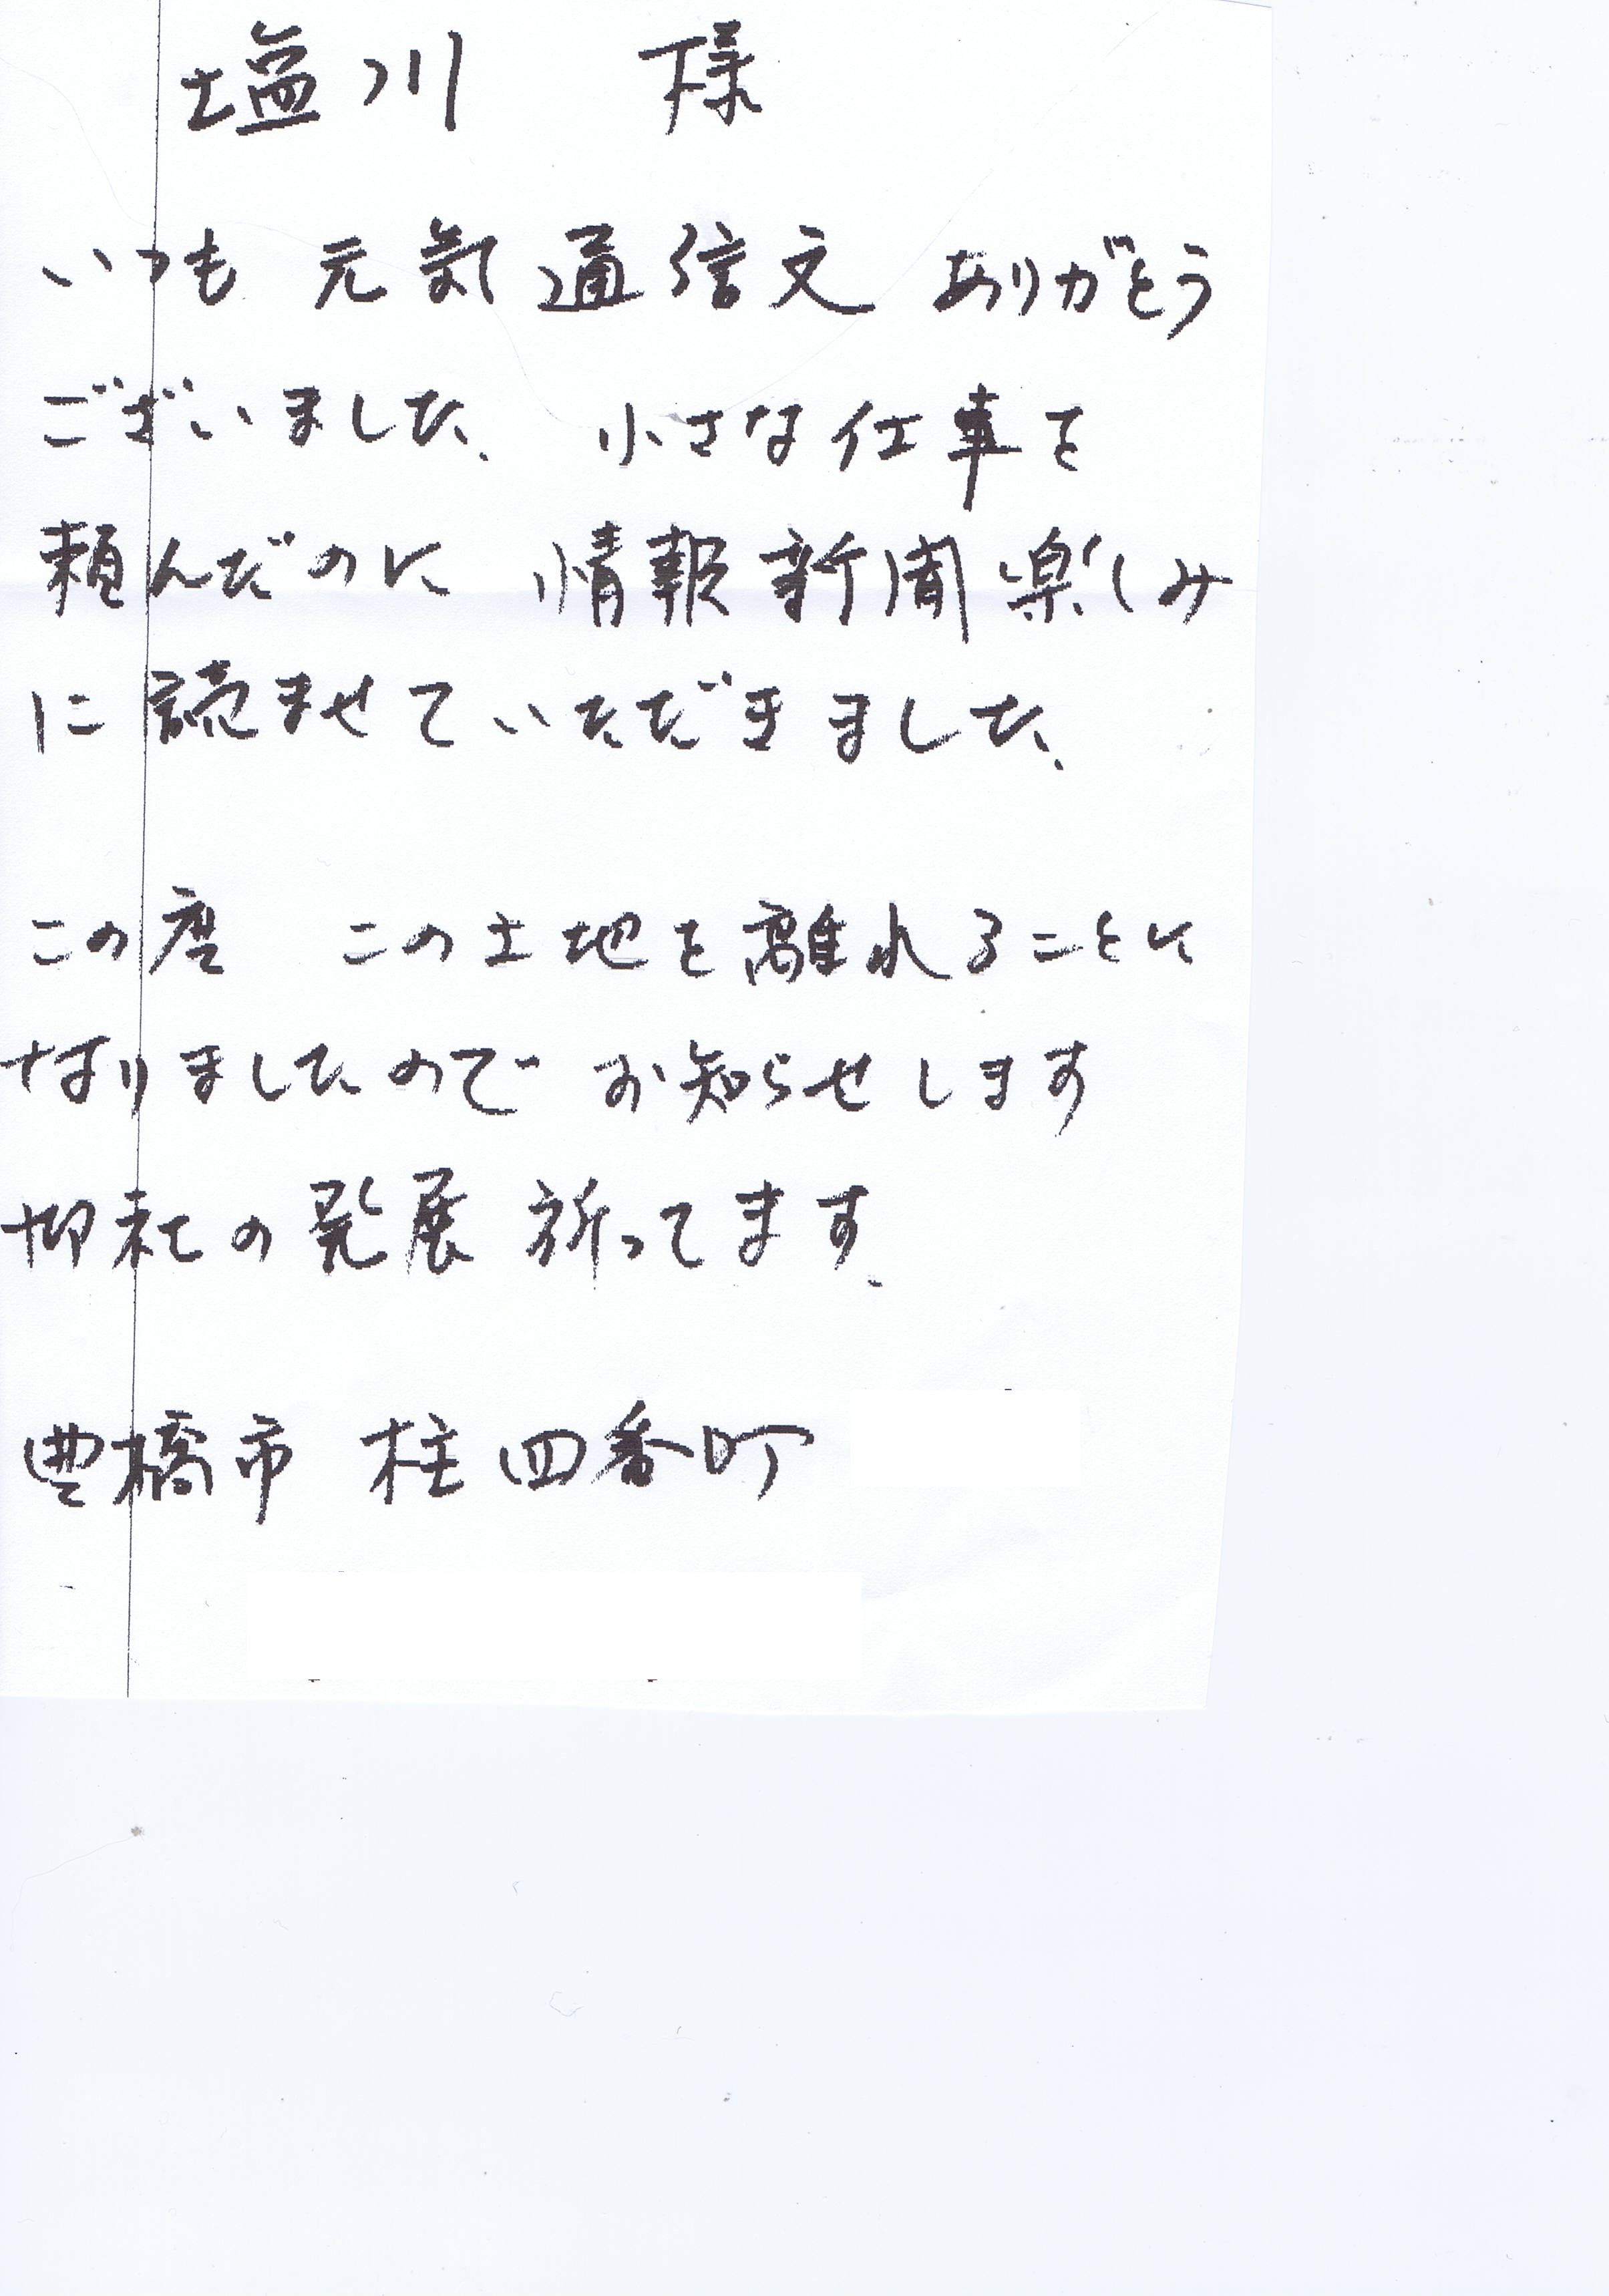 塩川　様
いつも 元気通信文 ありがとう
ございました、 小さな仕事を
頼んだのに 情報新聞楽しみ
に読ませていただきました、
この度　この土地を離れることに
なりましたので お知らせします
御社の発展 祈ってます、
豊橋市 柱四番町